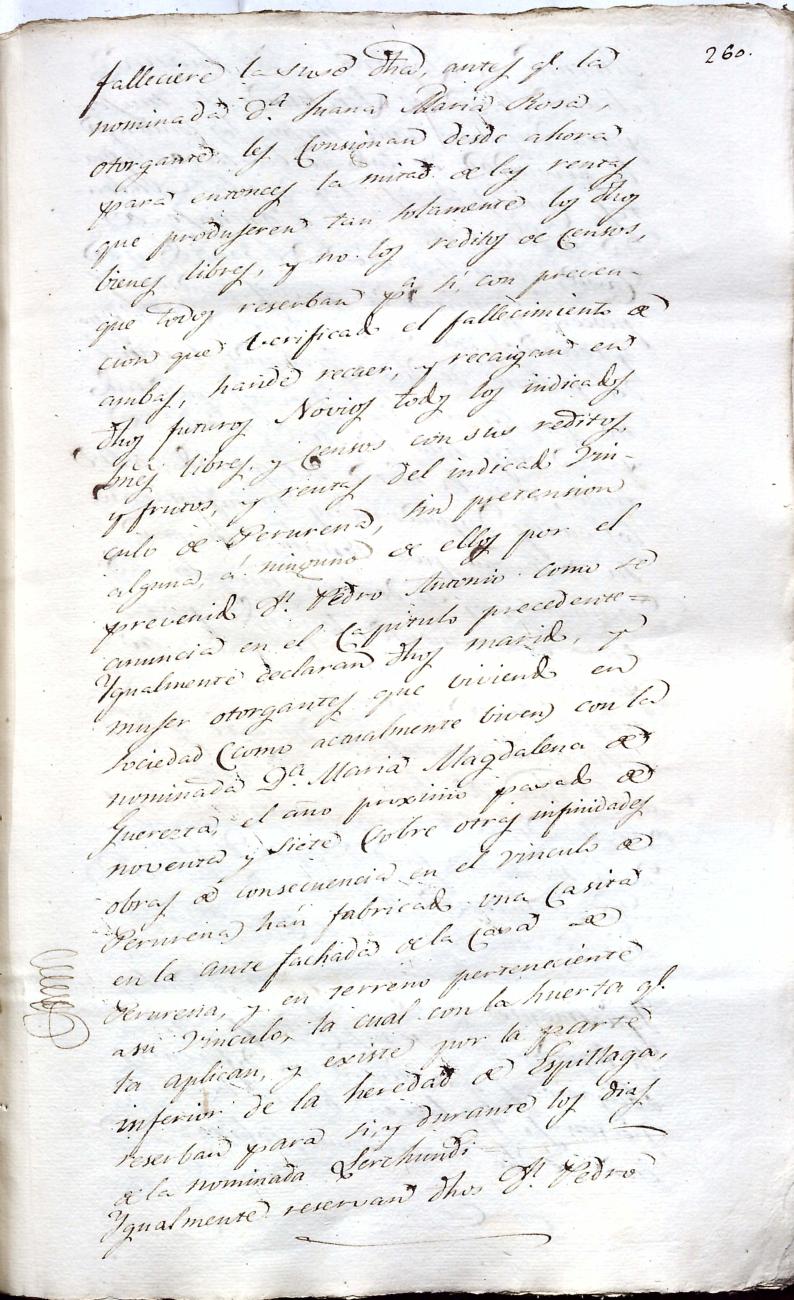 260.
falleciere la suso dha, antes q.e la
nominada d.a Juana Maria Rosa,
otorgante les Consignan desde ahora
para entonces la mitad de las rentas
que produjeren tan solamente los dhos
bienes libres, y no los reditos de Censos,
que todos reserban p.a si, con preven-
cion que verificado el fallecimiento de
ambas, hande recaer, y recaigan en
dhos futuros Novios todos los indicados
bnes libres, y Censos con sus reditos,
y frutos, y rentas del indicado Vin-
culo de Perurena, sin pretension
alguna, á ninguno de ellos por el
prevenido D.n Pedro Antonio como se
anuncia en el Capitulo precedente=
Ygualmente declaran dhos marido, y
muger otorgantes que viviendo en
sociedad (como actualmente viven) con la
nominada D.a Maria Magdalena de
Querezta, el año proximo pasado de
noventa y siete (sobre otras infinidades
obras de consecuencia en el vinculo de
Perurena) han fabricado una Casita
en la ante fachada de la Casa de
Perurena, y en terreno perteneciente
a su Vinculo, la cual con la huerta q.e
la aplican, y existe por la parte
inferior de la heredad de Espillaga,
reserban para si, y durante los dias
de la nominada Lerchundi
Ygualmente reservan dhos D.n Pedro